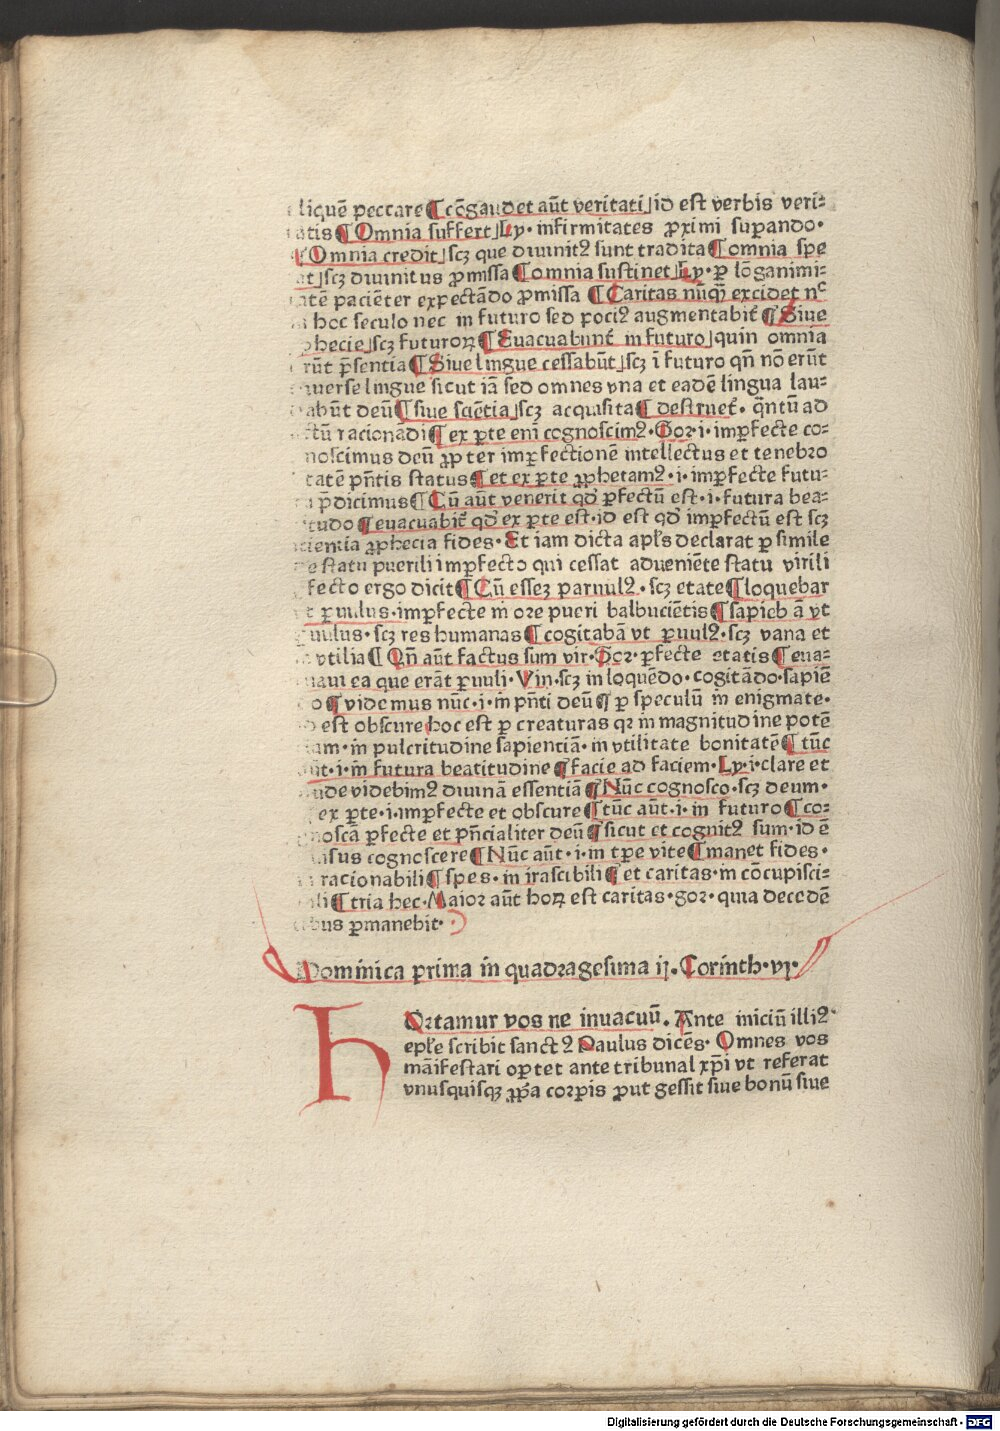 liquē peccare ¶ cōgaudet aūt veritati id est verbis veri-
tatis ¶ Omnia suffert Ly· infirmitates ꝓximi suꝑando·
¶ Omnia credit scꝫ que diuinitꝰ sunt tradita ¶ omnia spe
at scꝫ diuinitus ꝓmissa ¶ omnia sustinet Ly· ꝑ lōganimi-
tatē paciēter expectādo ꝓmissa ¶ Caritas nūqͣ excidet nᶜ
hoc seculo nec in futuro sed pociꝰ augmentabiť ¶ Siue
phecie scꝫ futuroꝝ ¶ Euacuabunť in futuro quin omnia
rūt p̄sentia ¶ Siue lingue cessabūt scꝫ ī futuro qn̄ nō erūt
uerse lingue sicut iā sed omnes vna et eadē lingua lau-
abūt deū ¶ siue sciētia scꝫ acquisita ¶ destrueť· q̄ntū ad
ctū racionādi ¶ ex ꝑte eni cognoscimꝰ· Gor·i· imꝑfecte co-
noscimus deū ꝓpter imꝑfectionē intellectus et tenebro
tatē pn̄tis status ¶ et ex ꝑte ꝓphetamꝰ·i· imꝑfecte futu-
a p̄dicimus ¶ Cū aūt venerit qd̓ ꝑfectū est·i· futura bea-
tudo ¶ euacuabiť qd̓ ex ꝑte est· id est qd̓ imꝑfectū est scꝫ
cientia ꝓphecia fides· Et iam dicta apl̓s declarat ꝑ simile
e statu puerili imꝑfecto qui cessat adueniēte statu virili
fecto ergo dicit ¶ Cū esseꝫ paruulꝰ· scꝫ etate ¶ loquebar
t ꝑuulus· imꝑfecte in ore pueri balbuciētis ¶ sapieb ā vt
uulus· scꝫ res humanas ¶ cogitabā vt ꝑuulꝰ· scꝫ vana et
vtilia ¶ Qn̄ aūt factus sum vir· Gor· ꝑfecte etatis ¶ eua-
uaui ea que erāt ꝑuuli· Vin· scꝫ in loquēdo· cogitādo· sapiē
o ¶ videmus nūc·i· in pn̄ti deū ¶ ꝑ speculū in enigmate·
est obscure hoc est ꝑ creaturas qꝛ in magnitudine potē
iam· in pulcritudine sapientiā· in vtilitate bonitatē ¶ tūc
ūt·i· in futura beatitudine ¶ facie ad faciem· Ly·i· clare et
ude videbimꝰ diuinā essentiā ¶ Nūc cognosco· scꝫ deum·
ex ꝑte·i· imꝑfecte et obscure ¶ tūc aūt·i· in futuro ¶ co-
gnoscā ꝑfecte et pn̄cialiter deū ¶ sicut et cognitꝰ sum· id ē
isus cognoscere ¶ Nūc aūt·i· in tꝑe vite ¶ manet fides·
racionabili ¶ spes· in irascibili ¶ et caritas· in cōcupisci-
ili ¶ tria hec· Maior aūt hoꝝ est caritas· gor· quia decedē
bus ꝑmanebit·
Dominica prima in quadragesima ij. Corinth·vj·
HOrtamur vos ne inuacuū. Ante iniciū illiꝰ
epl̓e scribit sanctꝰ Paulus dicēs· Omnes vos
māifestari oꝑtet ante tribunal xp̄i vt referat
vnusquisqꝫ ꝓp̄a corꝑis ꝓut gessit siue bonū siue
Digitalisierung gefördert durch die Deutsche Forschungsgemeinschaft - DFG